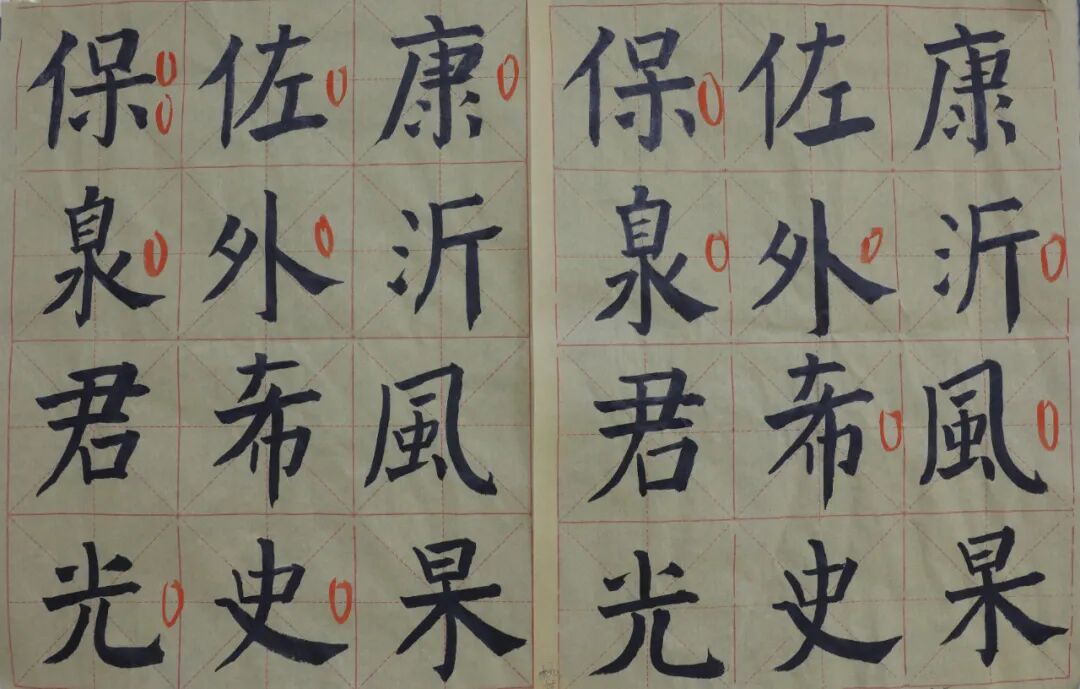 保佐康
泉外沂
君希風
光史杲
保佐康
泉外沂
君希風
光史杲